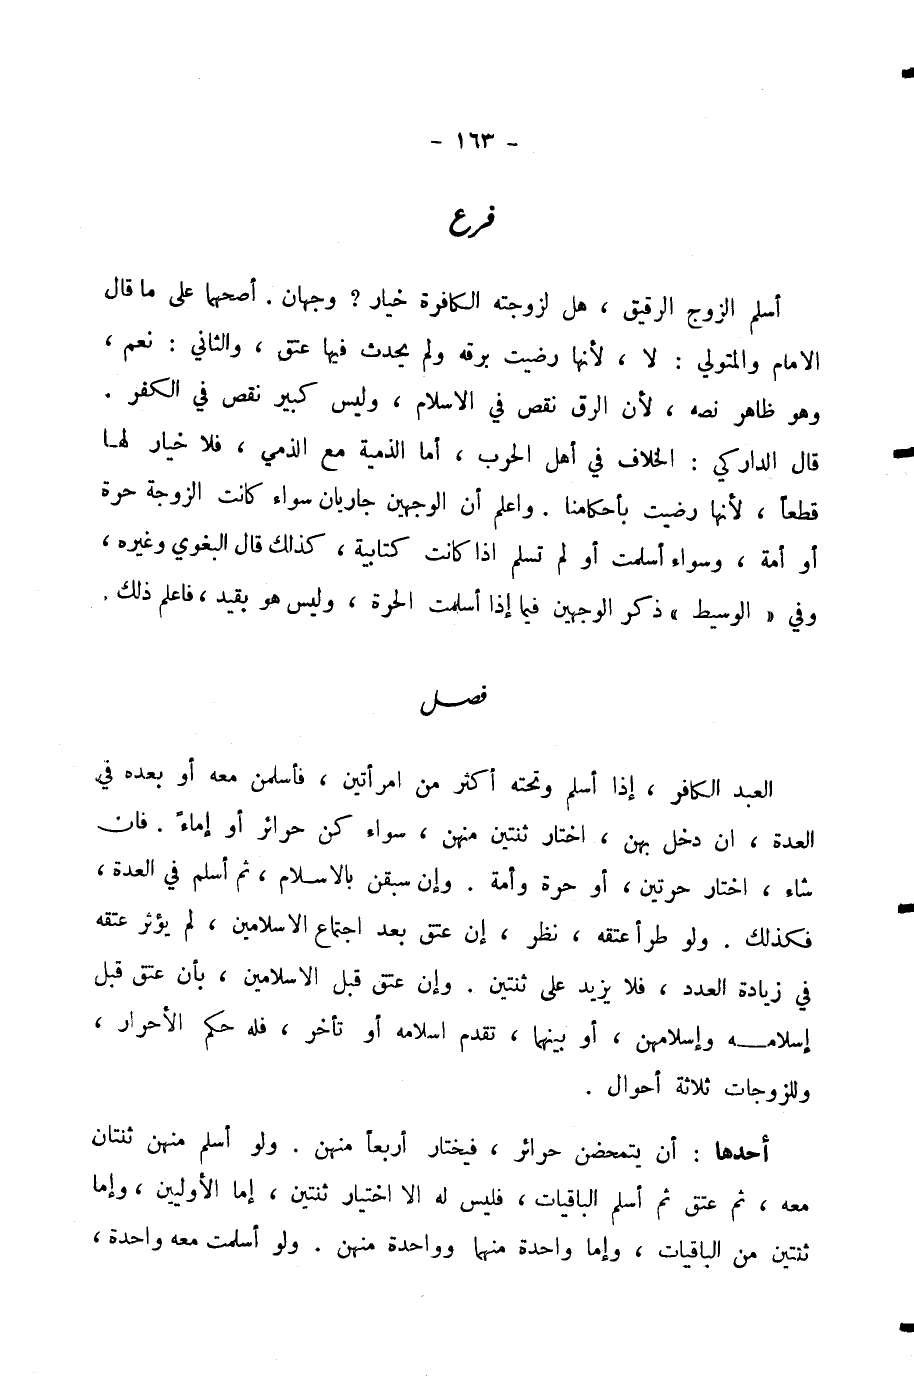 - ١٦٣ -
فرع
أسلم الزوج الرقيق ، هل لزوجته الكافرة خيار ? وجهان . أصحها على ما قال
الامام والمتولي : لا ، لأنها رضيت برقه ولم يحدث فيها عتق ، والثاني : نعم ،
وهو ظاهر نصه ، لأن الرق نقص في الاسلام ، وليس كبير نقص في الكفر .
قال الداركي : الخلاف في أهل الحرب ، أما الذمية مع الذمي ، فلا خيار لهـا
قطعاً ، لأنها رضيت بأحكامنا . واعلم أن الوجهين جاريان سواء كانت الزوجة حرة
أو أمة ، وسواء أسلمت أو لم تسلم اذا كانت كتابية ، كذلك قال البغوي وغيره ،
وفي « الوسيط » ذكر الوجهين فيما إذا أسلمت الحرة ، وليس هو بقيد ، فاعلم ذلك .
فصـل
العبد الكافر ، إذا أسلم وتحته أكثر من امرأتين ، فأسلمن معه أو بعده في
العدة ، ان دخل بهن ، اختار ثنتين منهن ، سواء كن حرائر أو إماءً . فان
شاء ، اختار حرتين ، أو حرة وأمة . وإن سبقن بالاسـلام ، ثم أسلم في العدة ،
فكذلك . ولو طرأ عتقه ، نظر ، إن عتق بعد اجتماع الاسلامين ، لم يؤثر عتقه
في زيادة العدد ، فلا يزيد على ثنتين . وإن عتق قبل الاسلامين ، بأن عتق قبل
إسلامـــه وإسلامهن ، أو بينهما ، تقدم اسلامه أو تأخر ، فله حكم الأحرار ،
وللزوجات ثلاثة أحوال .
أحدها : أن يتمحضن حرائر ، فيختار أربعاً منهن . ولو أسلم منهن ثنتان
معه ، ثم عتق ثم أسلم الباقيات ، فليس له الا اختيار ثنتين ، إما الأوليين ، وإما
ثنتين من الباقيات ، وإما واحدة منهما وواحدة منهن . ولو أسلمت معه واحدة ،